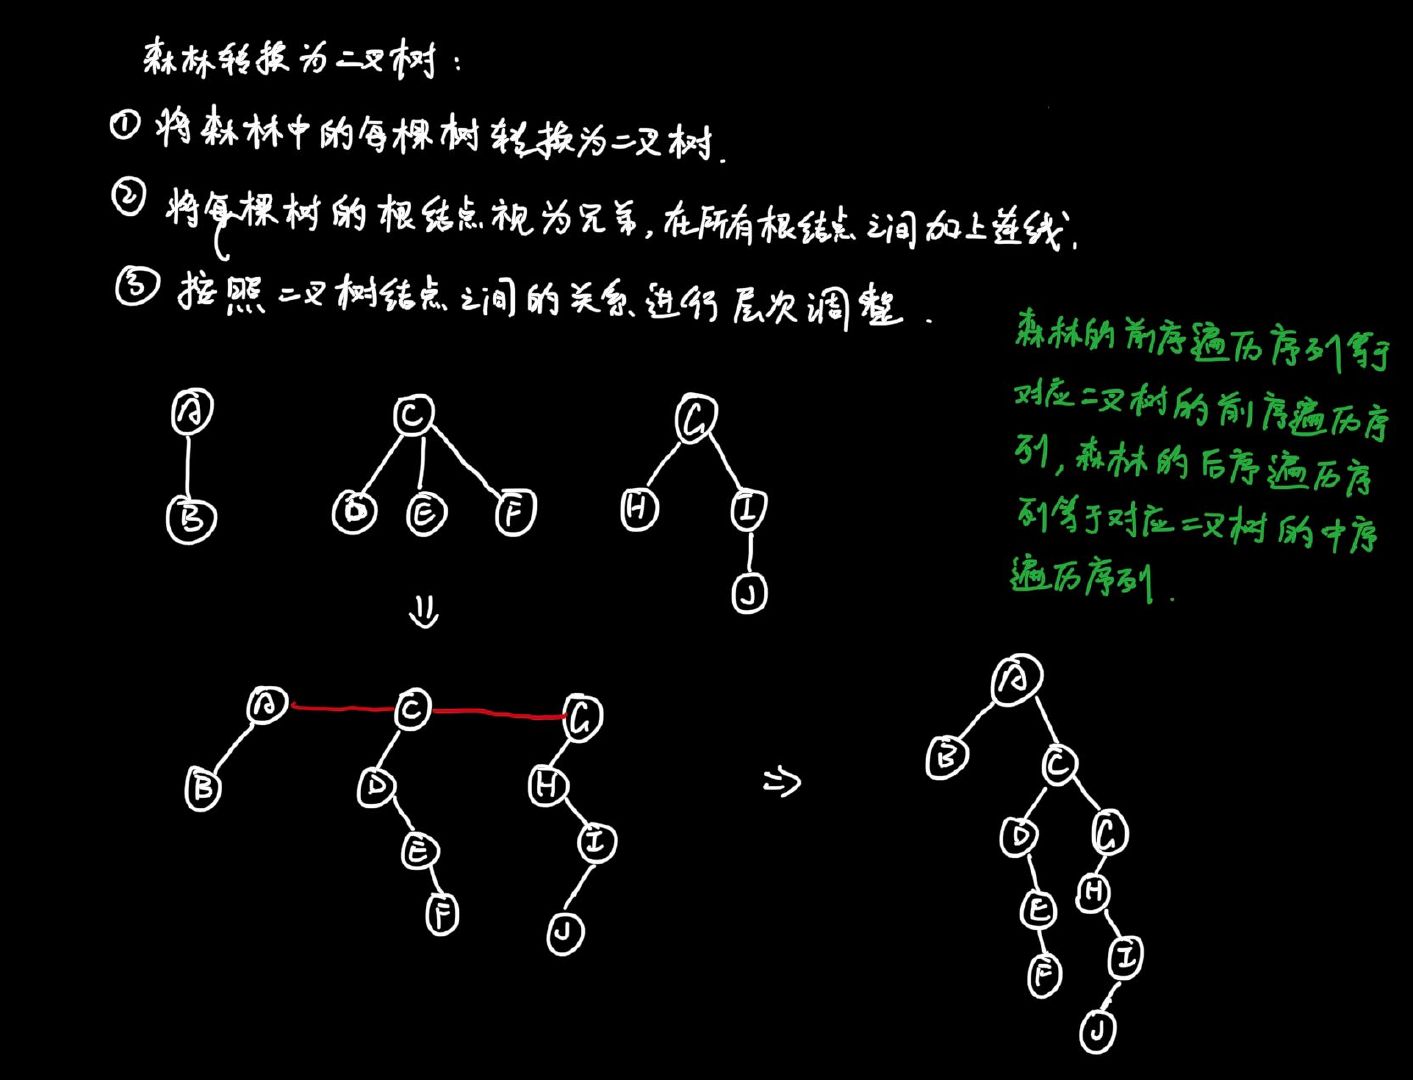 森林转换为二叉树：
① 将森林中的每棵树转换为二叉树.
② 将每棵树的根结点视为兄弟,在所有根结点之间加上连线;
③ 按照二叉树结点之间的关系进行层次调整.
森林的前序遍历序列等于
对应二叉树的前序遍历序
列,森林的后序遍历序
列等于对应二叉树的中序
遍历序列.
A C G
B D E F H I
J
⇓
A C G
B D H
E I
F J
⇒
A
B C
D G
E H
F I
J